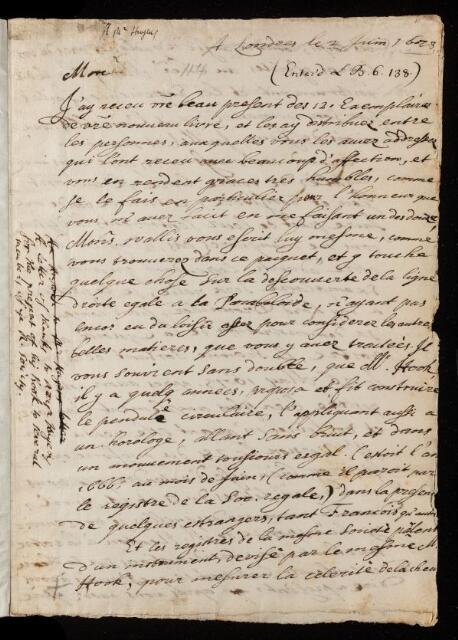 A Mr Hugens
A Londres le 2 Juin 1673
(Enterd L.B. 6. 138.)
Monr
J'ay receu vre beau present des 12. Exemplaires
de vre nouveau livre, et les ay distribuez entre
les personnes, auxquelles vous les avez addressez
qui l'ont receu avec beaucoup d'affection, et
vous en rendent graces tres humbles, comme
je le fais en particulier pour l'honneur que
vous m'avez fait en me faisant un des douze
Monsr. Wallis vous escrit luy mesme, comme
vous trouverez dans ce paquet, et y touche
quelque chose sur la descouverte de la ligne
droite egale a la Paraboloide, n'ayant pas
encor eu du loisir assez pour considerer les autres
belles matieres, que vous y avez traitées. Il
vous souvient sans doubte, que M. Hook
il y a quelq annees, proposa et fit construire
le pendule circulaire, l'appliquant aussi a
un horologe, allant sans bruit, et dans
un mouvement tousiours egal. C'estoit l'an
1666. au mois de Juin, (comme il paroit par
le registre de la Soc. regale,) dans la presence
de quelques estrangers, tant Francois qu'autres
Et les registres de la mesme Societé parlent
d'un instrument, devisé par le mesme M.
Hook, pour mesurer la celerité de la cheu
a letter of thanks to Monsr Hugens
for the present of his book to several
members of the R. Society.